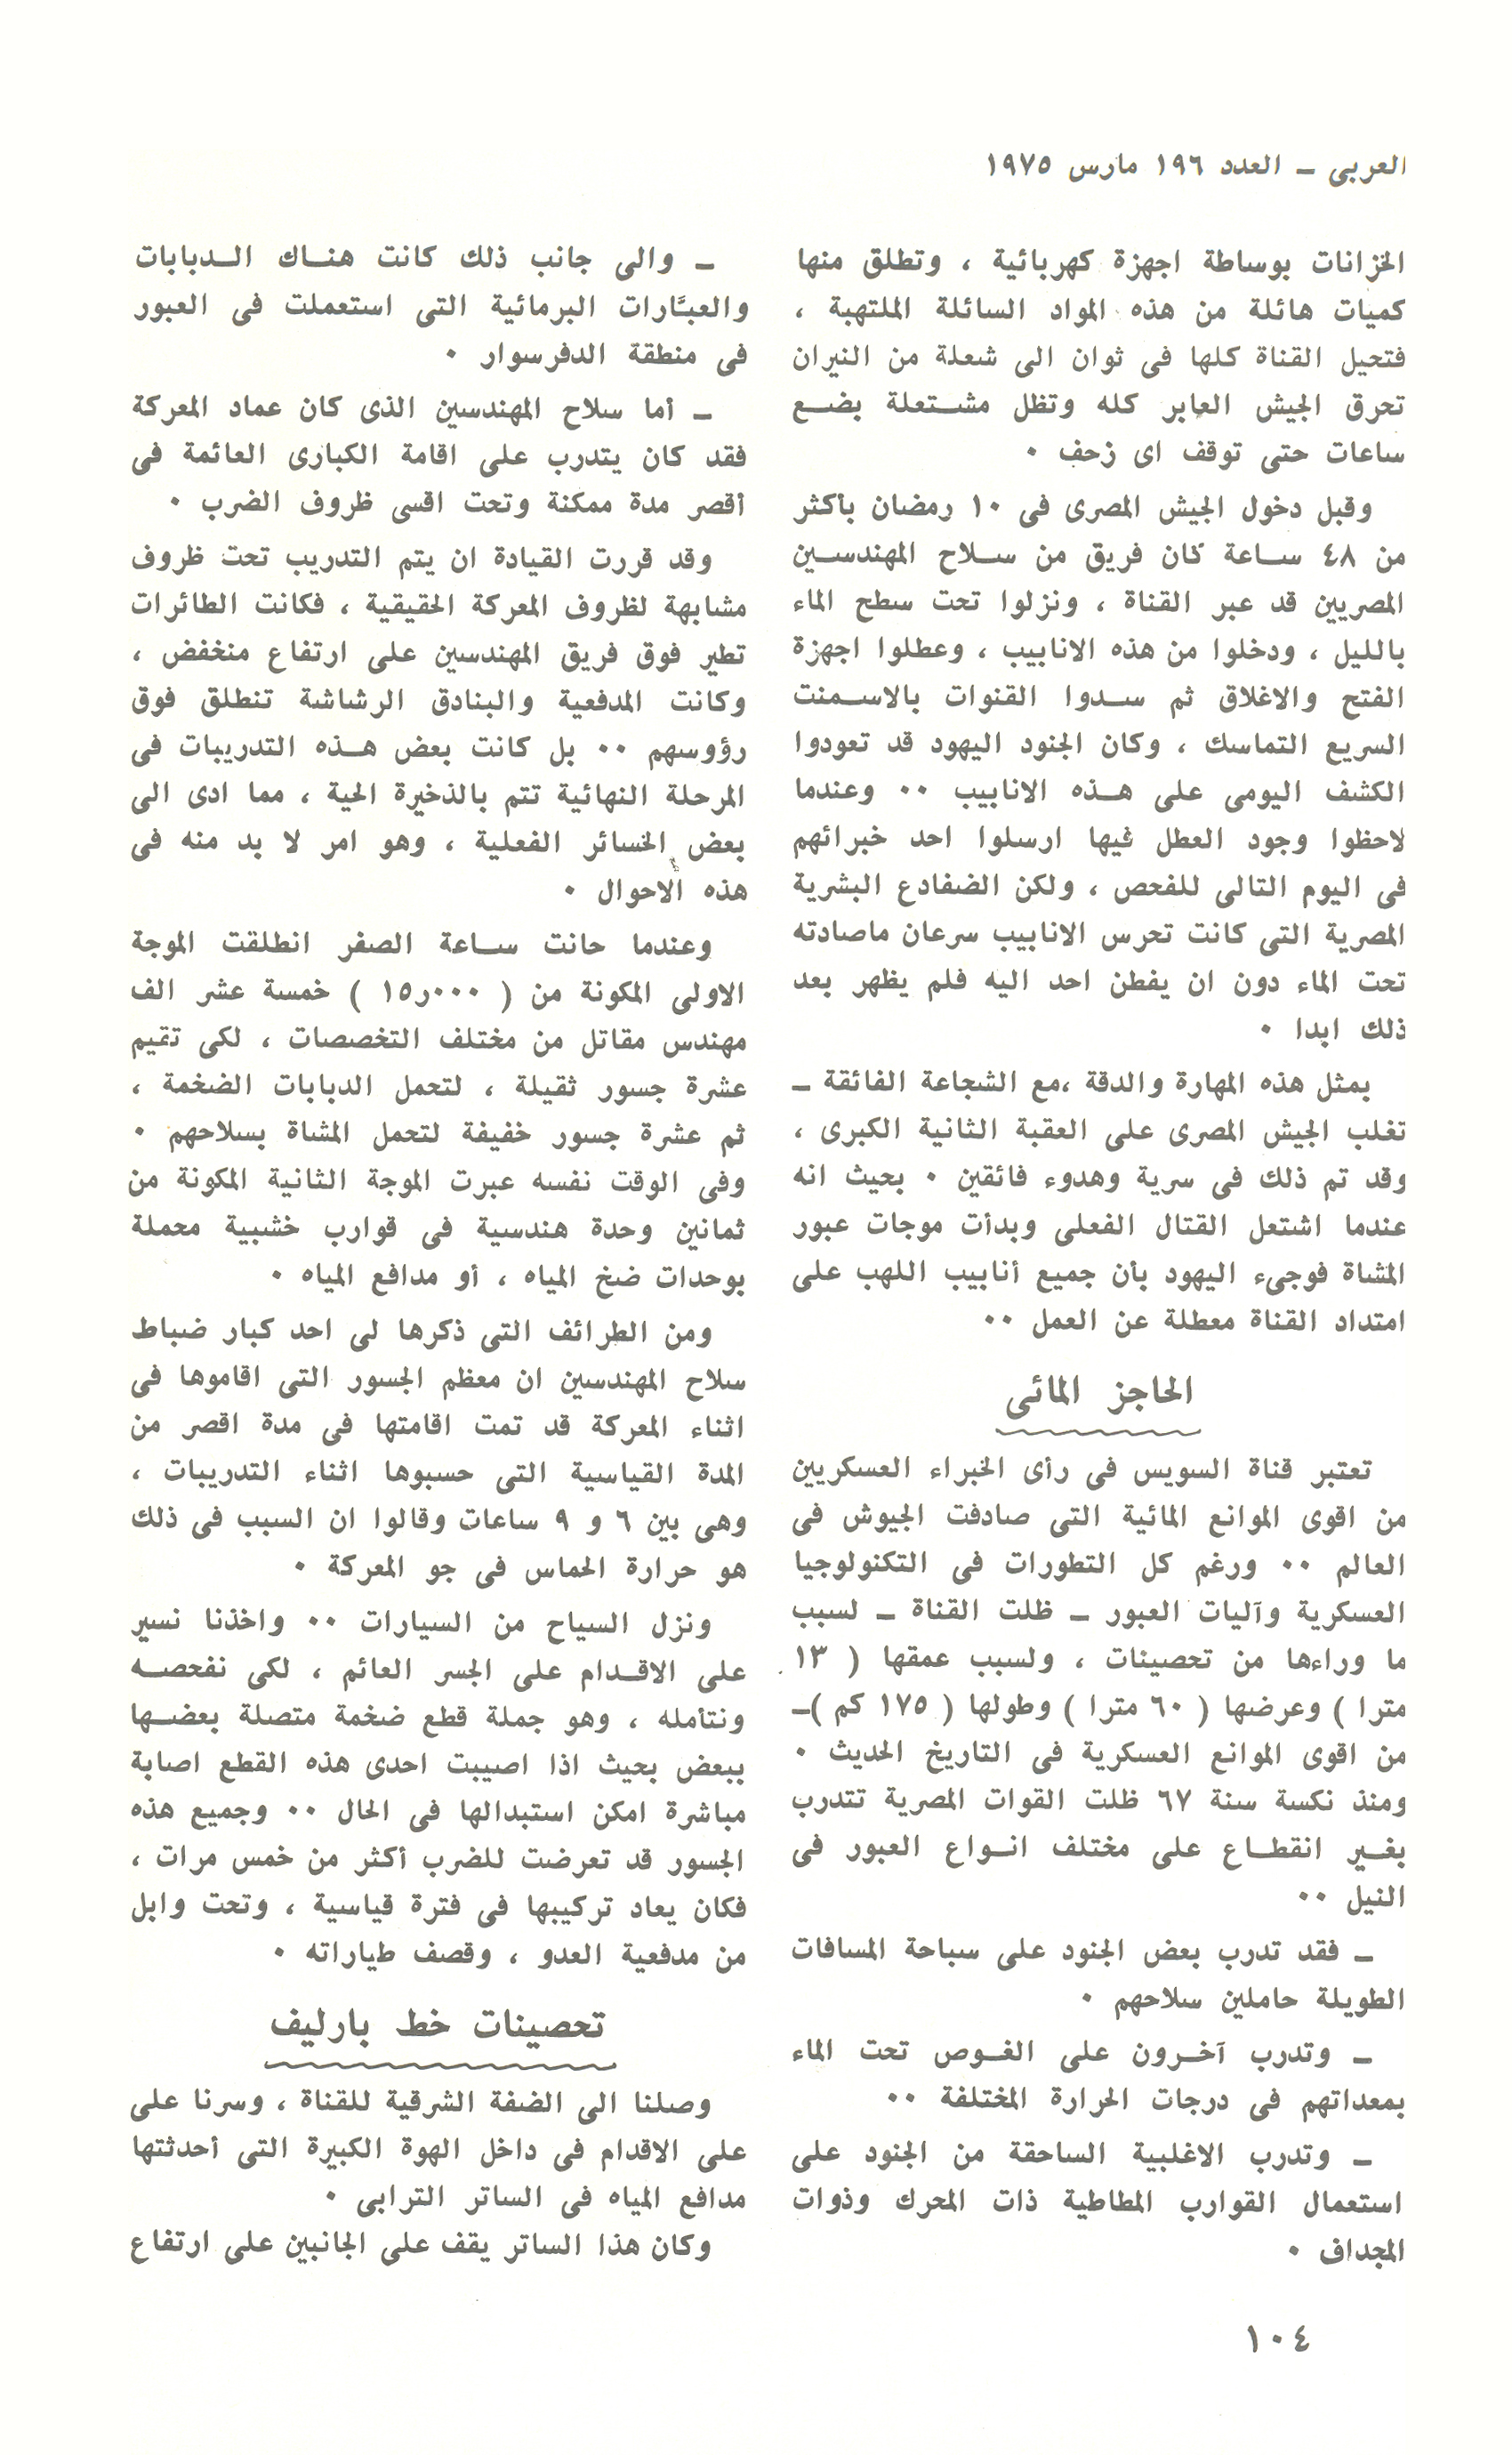 العربى ـ العدد ١٩٦ مارس ١٩٧٥
الخزانات بوساطة اجهزة كهربائية ، وتطلق منها
كميات هائلة من هذه المواد السائلة الملتهبة ،
فتحيل القناة كلها فى ثوان الى شعلة من النيران
تحرق الجيش العابر كله وتظل مشـتعلة بضـع
ساعات حتى توقف اى زحف ٠
وقبل دخول الجيش المصرى فى ١٠ رمضان بأكثر
من ٤٨ سـاعة كان فريق من سـلاح المهندسـين
المصريين قد عبر القناة ، ونزلوا تحت سطح الماء
بالليل ، ودخلوا من هذه الانابيب ، وعطلوا اجهزة
الفتح والاغلاق ثم سـدوا القنوات بالاسـمنت
السريع التماسك ، وكان الجنود اليهود قد تعودوا
الكشف اليومى على هـذه الانابيب ٠٠ وعندما
لاحظوا وجود العطل فيها ارسلوا احد خبرائهم
فى اليوم التالى للفحص ، ولكن الضفادع البشرية
المصرية التى كانت تحرس الانابيب سرعان ماصادته
تحت الماء دون ان يفطن احد اليه فلم يظهر بعد
ذلك ابدا ٠
بمثل هذه المهارة والدقة ،مع الشجاعة الفائقة ـ
تغلب الجيش المصرى على العقبة الثانية الكبرى ،
وقد تم ذلك فى سرية وهدوء فائقين ٠ بحيث انه
عندما اشتعل القتال الفعلى وبدأت موجات عبور
المشاة فوجىء اليهود بأن جميع أنابيب اللهب على
امتداد القناة معطلة عن العمل ٠٠
الحاجز المائى
تعتبر قناة السويس فى رأى الخبراء العسكريين
من اقوى الموانع المائية التى صادفت الجيوش فى
العالم ٠٠ ورغم كل التطورات فى التكنولوجيا
العسكرية وآليات العبور ـ ظلت القناة ـ لسبب
ما وراءها من تحصينات ، ولسبب عمقها ( ١٣
مترا ) وعرضها ( ٦٠ مترا ) وطولها ( ١٧٥ كم )ـ
من اقوى الموانع العسكرية فى التاريخ الحديث ٠
ومنذ نكسة سنة ٦٧ ظلت القوات المصرية تتدرب
بغـير انقطـاع على مختلف انـواع العبور فى
النيل ٠٠
ـ فقد تدرب بعض الجنود على سباحة المسافات
الطويلة حاملين سلاحهم ٠
ـ وتدرب آخـرون على الغـوص تحت الماء
بمعداتهم فى درجات الحرارة المختلفة ٠٠
ـ وتدرب الاغلبية الساحقة من الجنود على
استعمال القوارب المطاطية ذات المحرك وذوات
المجداف ٠
ـ والى جانب ذلك كانت هنـاك الـدبابات
والعبّارات البرمائية التى استعملت فى العبور
فى منطقة الدفرسوار ٠
ـ أما سلاح المهندسين الذى كان عماد المعركة
فقد كان يتدرب على اقامة الكبارى العائمة فى
أقصر مدة ممكنة وتحت اقسى ظروف الضرب ٠
وقد قررت القيادة ان يتم التدريب تحت ظروف
مشابهة لظروف المعركة الحقيقية ، فكانت الطائرات
تطير فوق فريق المهندسين على ارتفاع منخفض ،
وكانت المدفعية والبنادق الرشاشة تنطلق فوق
رؤوسهم ٠٠ بل كانت بعض هـذه التدريبات فى
المرحلة النهائية تتم بالذخيرة الحية ، مما ادى الى
بعض الخسائر الفعلية ، وهو امر لا بد منه فى
هذه الاحوال ٠
وعندما حانت سـاعة الصفر انطلقت الموجة
الاولى المكونة من ( ١٥ر٠٠٠ ) خمسة عشر الف
مهندس مقاتل من مختلف التخصصات ، لكى تقيم
عشرة جسور ثقيلة ، لتحمل الدبابات الضخمة ،
ثم عشرة جسور خفيفة لتحمل المشاة بسلاحهم ٠
وفى الوقت نفسه عبرت الموجة الثانية المكونة من
ثمانين وحدة هندسية فى قوارب خشبية محملة
بوحدات ضخ المياه ، أو مدافع المياه ٠
ومن الطرائف التى ذكرها لى احد كبار ضباط
سلاح المهندسين ان معظم الجسور التى اقاموها فى
اثناء المعركة قد تمت اقامتها فى مدة اقصر من
المدة القياسية التى حسبوها اثناء التدريبات ،
وهى بين ٦ و ٩ ساعات وقالوا ان السبب فى ذلك
هو حرارة الحماس فى جو المعركة ٠
ونزل السياح من السيارات ٠٠ واخذنا نسير
على الاقـدام على الجسر العائم ، لكى نفحصـه
ونتأمله ، وهو جملة قطع ضخمة متصلة بعضـها
ببعض بحيث اذا اصيبت احدى هذه القطع اصابة
مباشرة امكن استبدالها فى الحال ٠٠ وجميع هذه
الجسور قد تعرضت للضرب أكثر من خمس مرات ،
فكان يعاد تركيبها فى فترة قياسية ، وتحت وابل
من مدفعية العدو ، وقصف طياراته ٠
تحصينات خط بارليف
وصلنا الى الضفة الشرقية للقناة ، وسرنا على
على الاقدام فى داخل الهوة الكبيرة التى أحدثتها
مدافع المياه فى الساتر الترابى ٠
وكان هذا الساتر يقف على الجانبين على ارتفاع
١٠٤